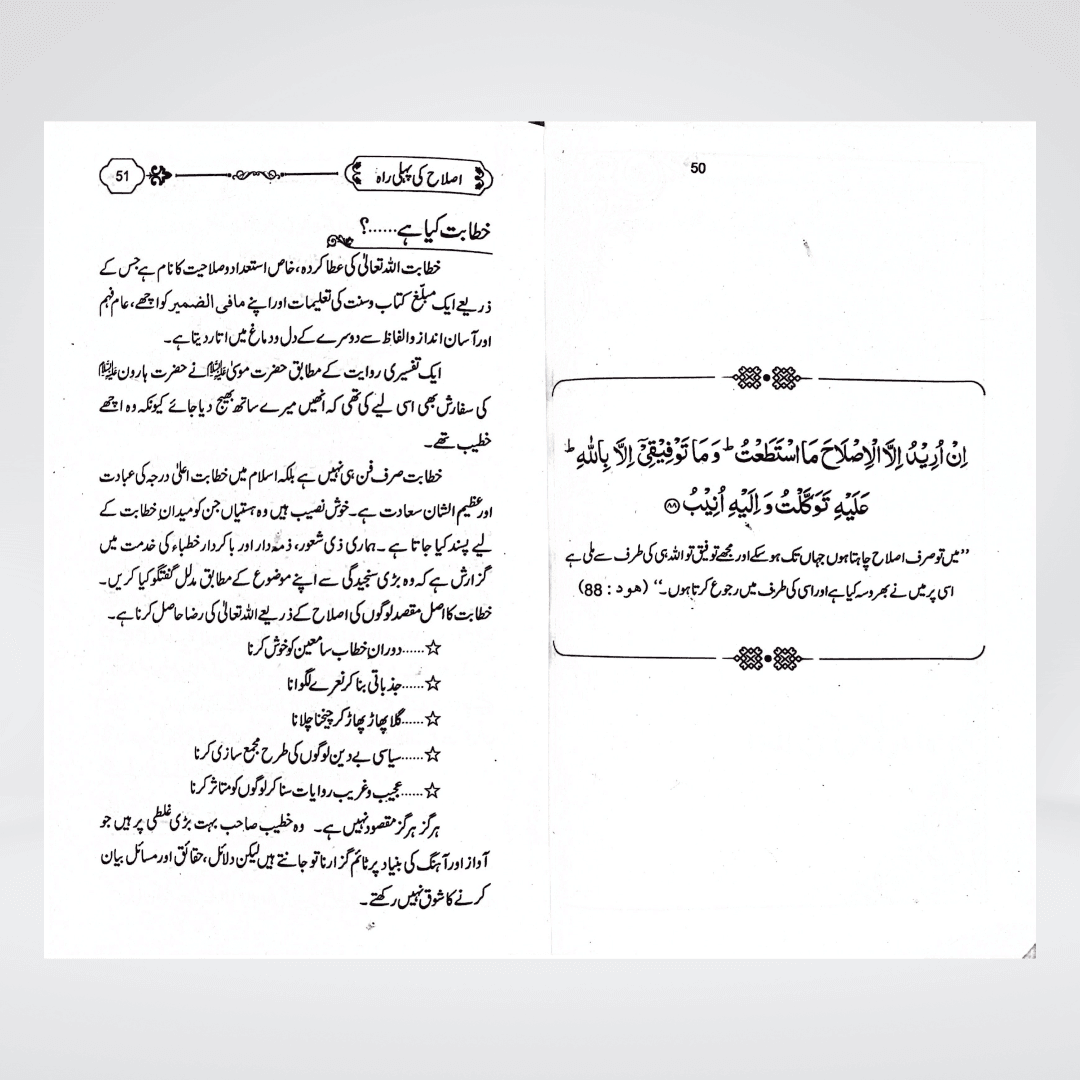 50
اِنْ اُرِيْدُ اِلَّا الْاِصْلَاحَ مَا اسْتَطَعْتُ ؕ وَ مَا تَوْفِيْقِيْۤ اِلَّا بِاللّٰهِ ؕ
عَلَيْهِ تَوَكَّلْتُ وَ اِلَيْهِ اُنِيْبُ ۸۸
”میں تو صرف اصلاح چاہتا ہوں جہاں تک ہو سکے اور مجھے توفیق تو اللہ ہی کی طرف سے ملی ہے
اسی پر میں نے بھروسہ کیا ہے اور اسی کی طرف میں رجوع کرتا ہوں۔“ (هود : 88)
اصلاح کی پہلی راہ 51
خطابت کیا ہے......؟
خطابت اللہ تعالیٰ کی عطا کردہ، خاص استعداد و صلاحیت کا نام ہے جس کے
ذریعے ایک مبلّغ کتاب و سنت کی تعلیمات اور اپنے مافی الضمیر کو اچھے، عام فہم
اور آسان انداز و الفاظ سے دوسرے کے دل و دماغ میں اتار دیتا ہے۔
ایک تفسیری روایت کے مطابق حضرت موسیٰ علیہ السلام نے حضرت ہارون علیہ السلام
کی سفارش بھی اسی لیے کی تھی کہ انھیں میرے ساتھ بھیج دیا جائے کیونکہ وہ اچھے
خطیب تھے۔
خطابت صرف فن ہی نہیں ہے بلکہ اسلام میں خطابت اعلیٰ درجہ کی عبادت
اور عظیم الشان سعادت ہے۔ خوش نصیب ہیں وہ ہستیاں جن کو میدانِ خطابت کے
لیے پسند کیا جاتا ہے۔ ہماری ذی شعور، ذمہ دار اور باکردار خطباء کی خدمت میں
گزارش ہے کہ وہ بڑی سنجیدگی سے اپنے موضوع کے مطابق مدلل گفتگو کیا کریں۔
خطابت کا اصل مقصد لوگوں کی اصلاح کے ذریعے اللہ تعالیٰ کی رضا حاصل کرنا ہے۔
☆......دورانِ خطاب سامعین کو خوش کرنا
☆......جذباتی بنا کر نعرے لگوانا
☆......گلا پھاڑ پھاڑ کر چیخنا چلانا
☆......سیاسی بے دین لوگوں کی طرح مجمع سازی کرنا
☆......عجیب و غریب روایات سنا کر لوگوں کو متاثر کرنا
ہرگز ہرگز مقصود نہیں ہے۔ وہ خطیب صاحب بہت بڑی غلطی پر ہیں جو
آواز اور آہنگ کی بنیاد پر ٹائم گزارنا تو جانتے ہیں لیکن دلائل، حقائق اور مسائل بیان
کرنے کا شوق نہیں رکھتے۔